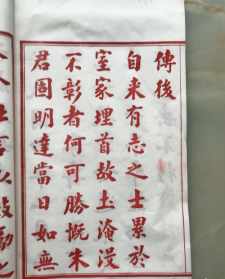 傳後
自来有志之士累於
室家埋首故土淹没
不彰者何可勝慨朱
君固明達當日如無